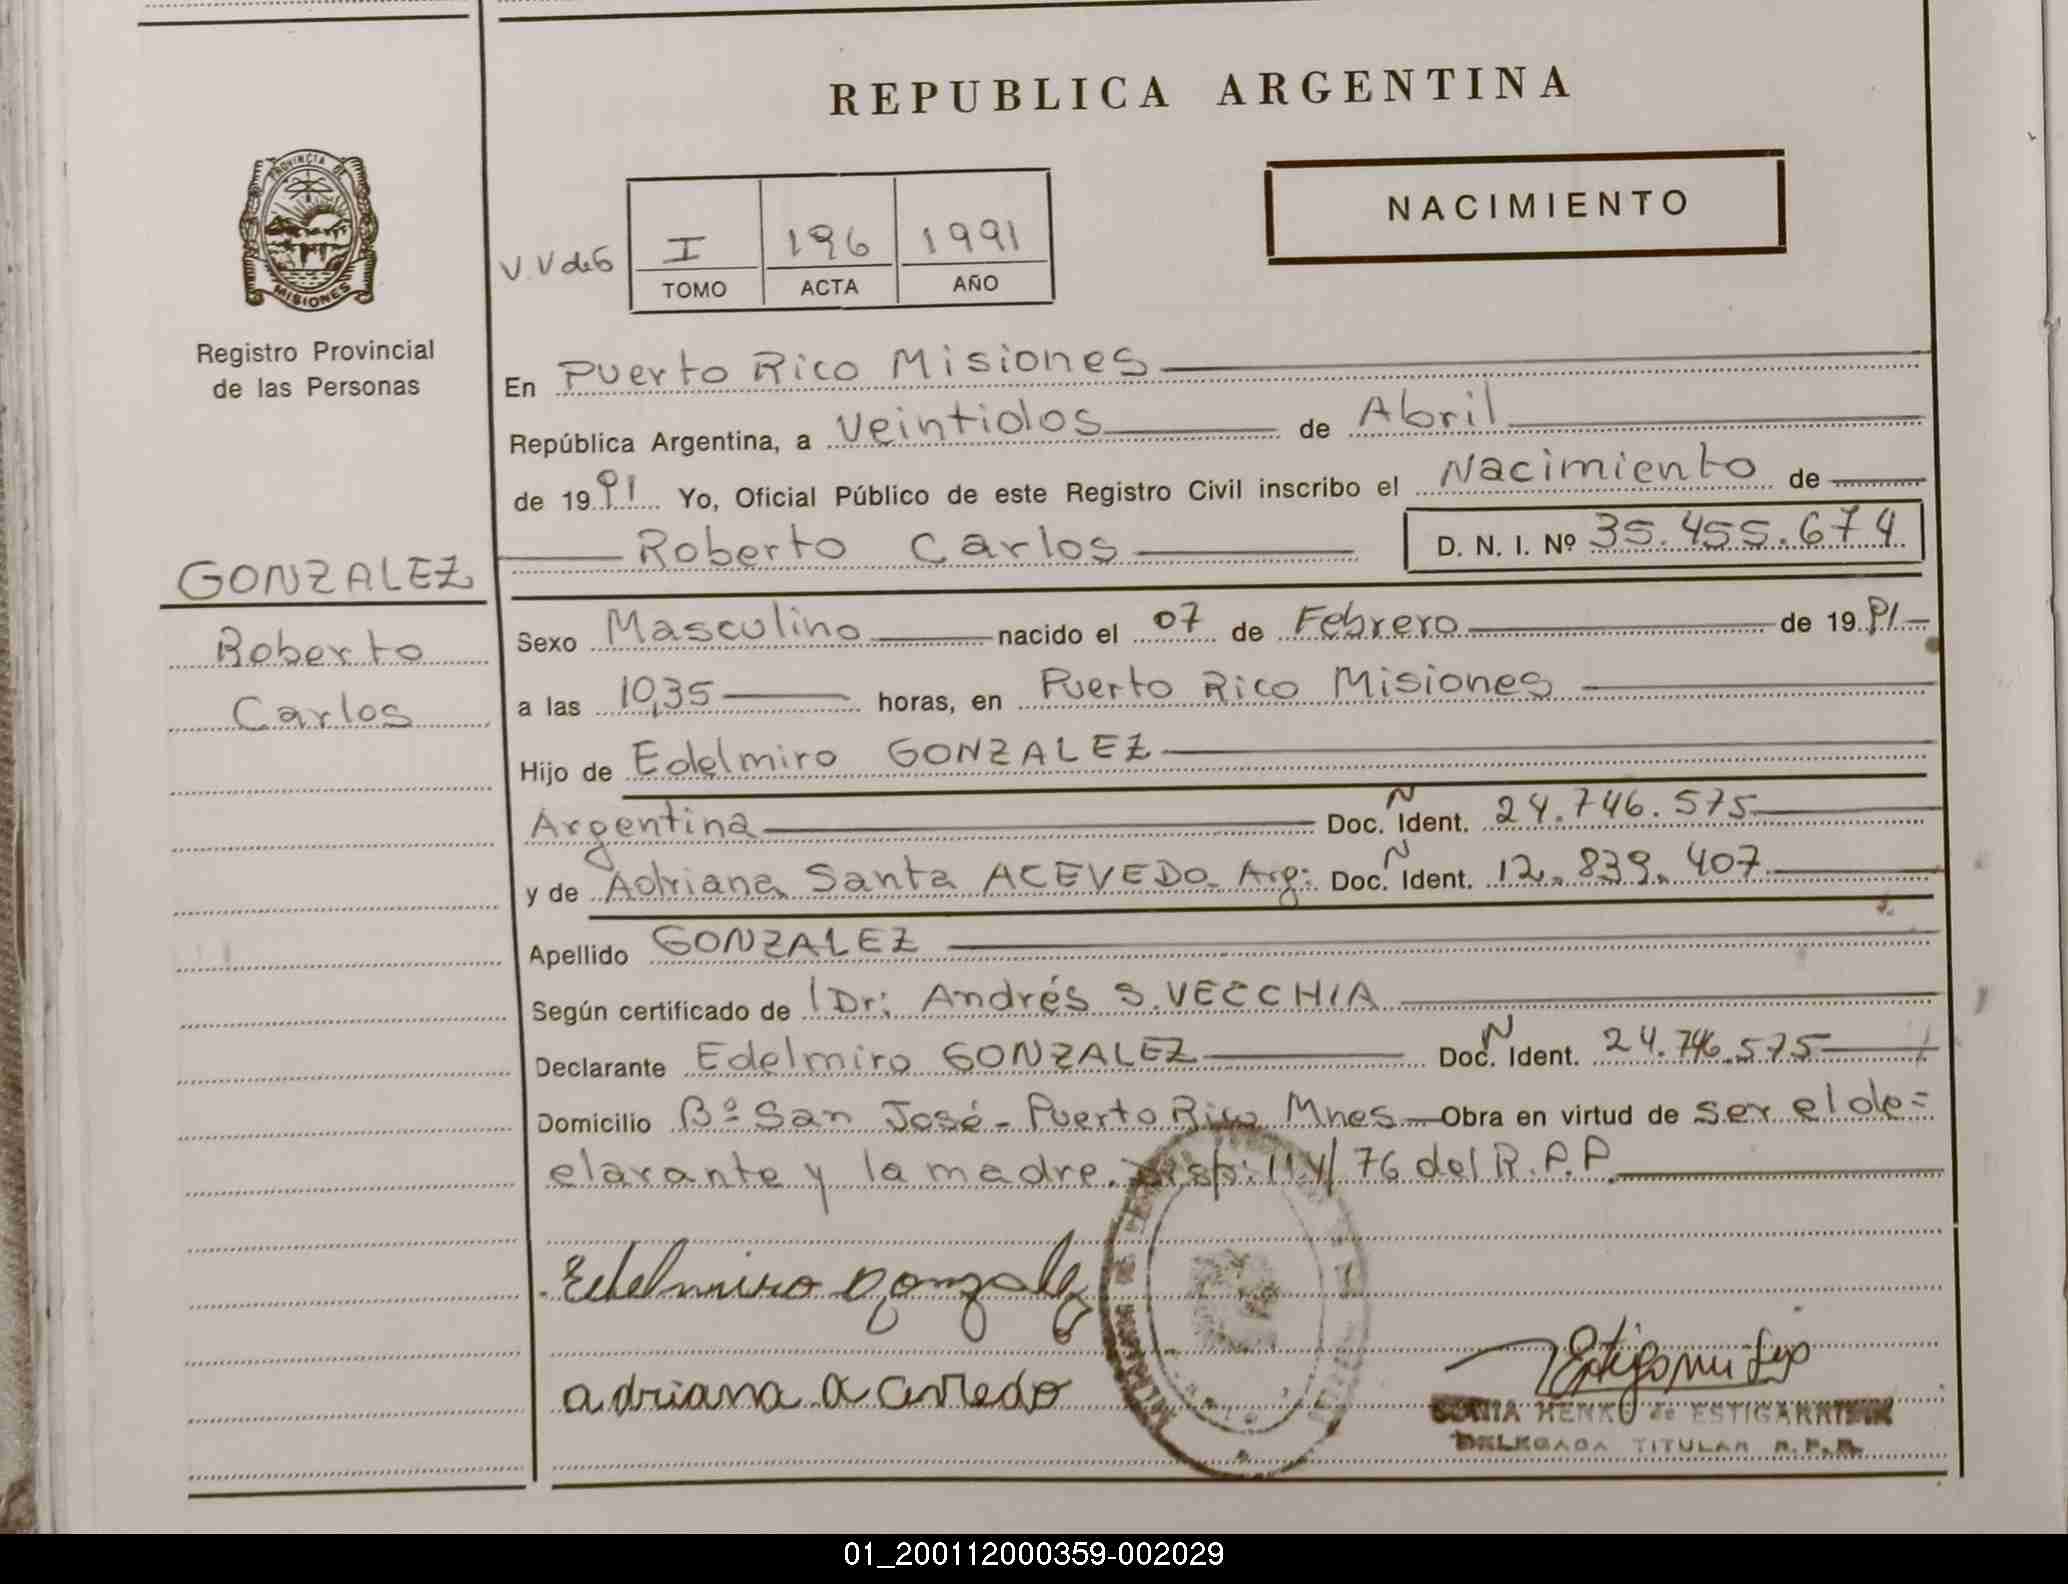 REPUBLICA ARGENTINA
PROVINCIA DE
MISIONES
Registro Provincial
de las Personas
NACIMIENTO
I 196 1991
TOMO ACTA AÑO
En Puerto Rico Misiones
República Argentina, a Veintidos de Abril
de 1991 Yo, Oficial Público de este Registro Civil inscribo el Nacimiento de
Roberto Carlos D. N. I. Nº 35.455.674
GONZALEZ
Roberto
Carlos
Sexo Masculino nacido el 07 de Febrero de 1991
a las 10,35 horas, en Puerto Rico Misiones
Hijo de Edelmiro GONZALEZ
Argentina Doc. N Ident. 24.746.575
y de Adriana Santa ACEVEDO Arg: Doc. N Ident. 12.839.407
Apellido GONZALEZ
Según certificado de Dr: Andrés S. VECCHIA
Declarante Edelmiro GONZALEZ Doc. N Ident. 24.746.575
Domicilio Bº San José - Puerto Rico Mnes Obra en virtud de ser el de=
clarante y la madre. /76 del R.P.P
Edelmiro Gonzalez
adriana acevedo
de ESTIGARRIBIA
DELEGADA TITULAR R.P.P.
01_200112000359-002029